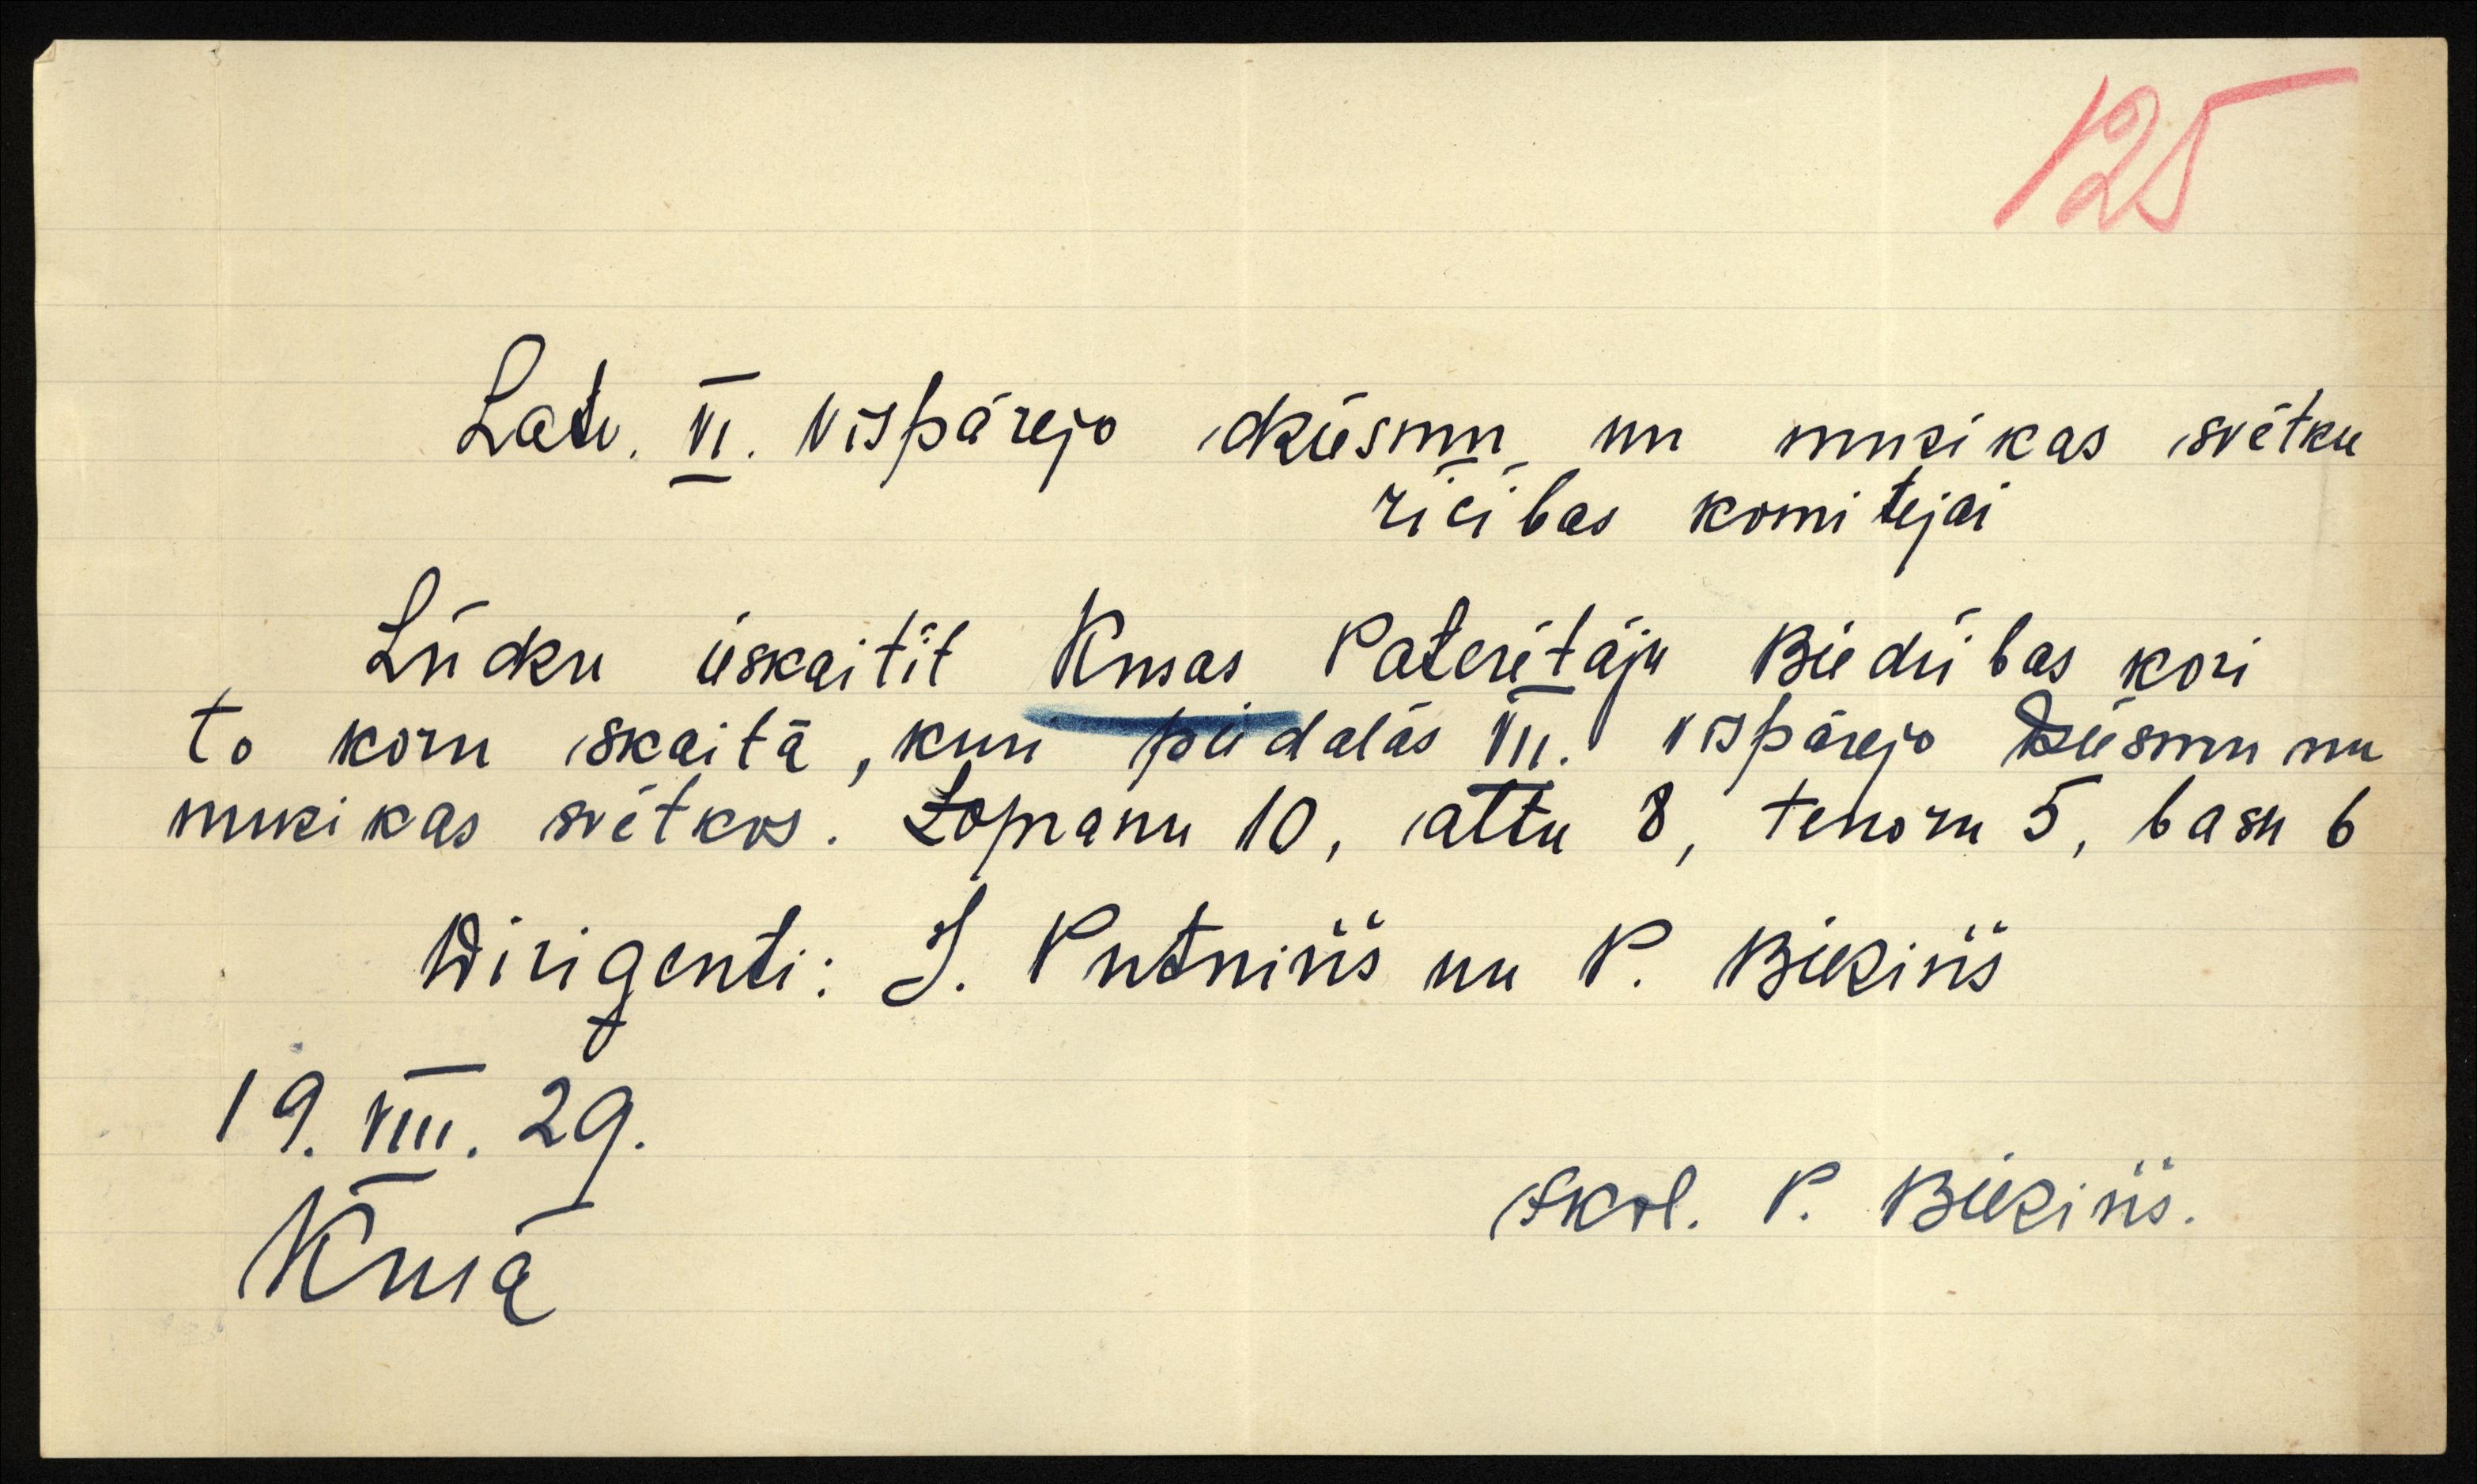 125
Latv. VI. vispārejo dziesmu un muzikas svētku
rīcības komitejai
Lūdzu ieskaitīt Kusas Patērētāju Biedrības kori
to koru skaitā, kuri piedalās VII. vispārejo Dziesmu un
muzikas svētkos. Sopranu 10, altu 8, tenoru 5, basu 6
Dirigenti: J. Putniņš un P. Bieziņš
19. VIII. 29.
Kusā
skol. P. Bieziņš.